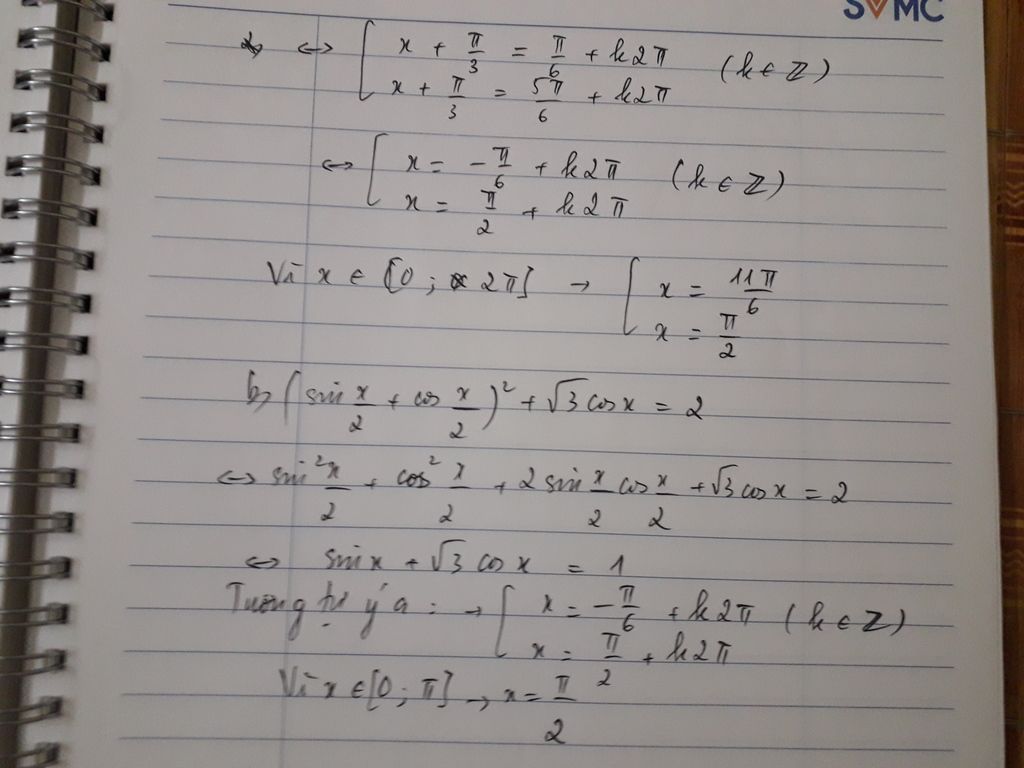 SVMC
⇔ [ x + π/3 = π/6 + k2π (k ∈ Z)
x + π/3 = 5π/6 + k2π
⇔ [ x = -π/6 + k2π (k ∈ Z)
x = π/2 + k2π
Vì x ∈ [0 ; 2π] → [ x = 11π/6
x = π/2
b, (sin x/2 + cos x/2)² + √3 cos x = 2
⇔ sin² x/2 + cos² x/2 + 2 sin x/2 cos x/2 + √3 cos x = 2
⇔ sin x + √3 cos x = 1
Tương tự ý a : → [ x = -π/6 + k2π (k ∈ Z)
x = π/2 + k2π
Vì x ∈ [0 ; π] → x = π/2